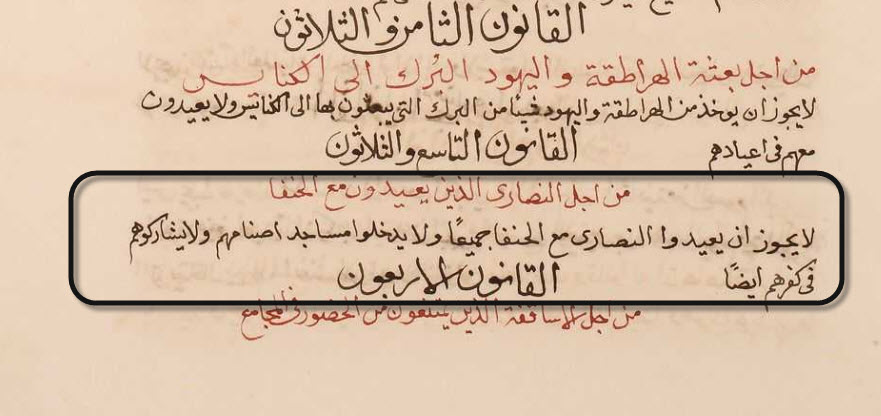 القانون الثامن والثلاثون
من اجل بعثة الهراطقة واليهود البرك الى الكنايس
لايجوز ان يوخذ من الهراطقة واليهود شيا من البرك التي يبعثون بها الى الكنايس ولا يعيدون
معهم فى اعيادهم القانون التاسع والثلاثون
من اجل النصارى الذين يعيدون مع الحنفا
لايجوز ان يعيدوا النصارى مع الحنفا جميعًا ولا يدخلوا مساجد اصنامهم ولا يشاركوهم
فى كفرهم ايضًا القانون الاربعون
من اجل الاساقفة الذين يتخلفون من الحضور فى المجامع